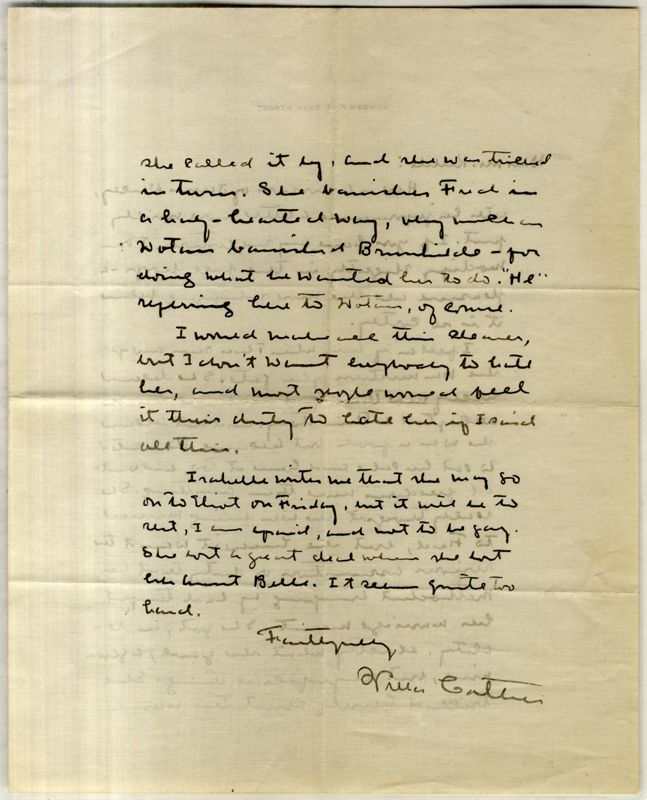 NUMBER FIVE BANK STREET
she called it by, and she was tricked
in turn. She banishes Fred in
a half-hearted way, very much as
Wotan banished Brunhilde - for
doing what he wanted her to do. "He"
refering here to Wotan, of course.
I would make all this clearer,
but I don't want everybody to hate
her, and most people would feel
it their duty to hate her if I said
all this.
Isabelle writes me that she may go
on to Eliot on Friday, but it will be to
rest, I am afraid, and not to be gay.
She lost a great deal when she lost
her Aunt Belle. It seems quite too
hard.
Faithfully
Willa Cather